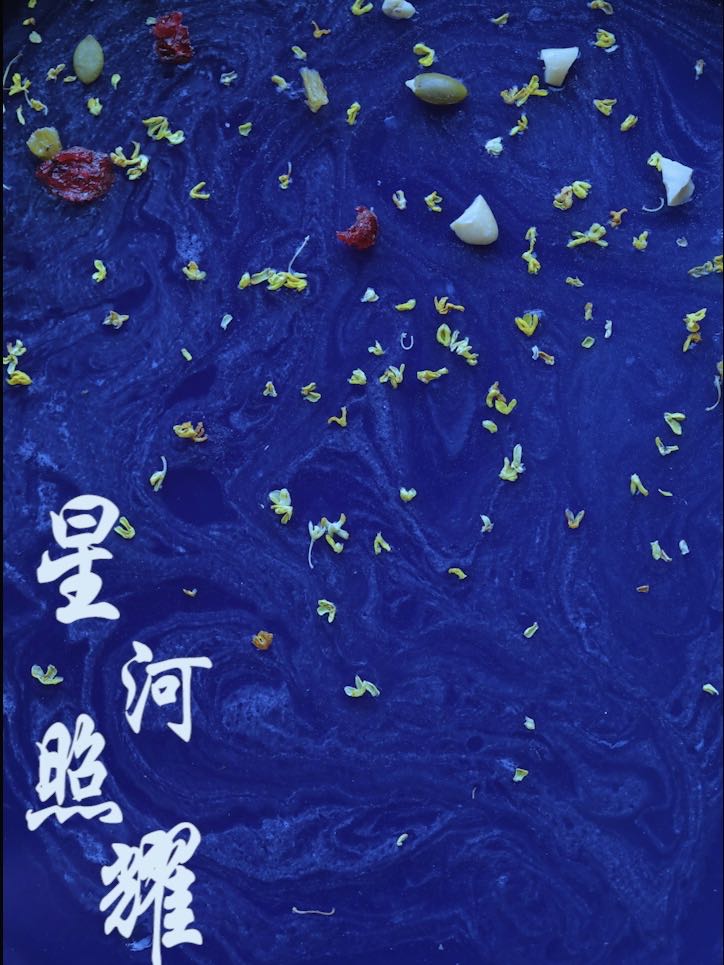 星河照耀